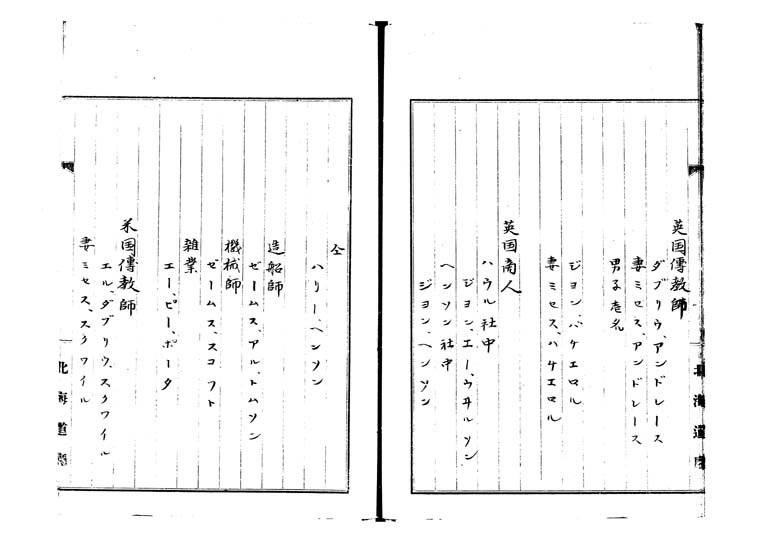 英国傳教師
ダブリウ、アンドレース
妻ミセス、アンドレース
男子壱名
ジヨン、バケエロル
妻ミセス、バケエロル
英国商人
ハウル社中
ジヨン、エー、ウヰルソン
ヘンソン社中
ジヨン、ヘンソン
北海道庁
仝
ハリー、ヘンソン
造船師
ゼームス、アル、トムソン
機械師
ゼームス、スコフト
雑業
エー、ピー、ポータ
米国傳教師
エル、ダブリウ、スクワイル
妻ミセス、スクワイル
北海道庁